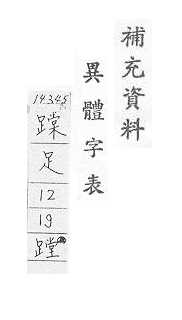 補充資料
異體字表
14345
蹀
足
12
19
蹚